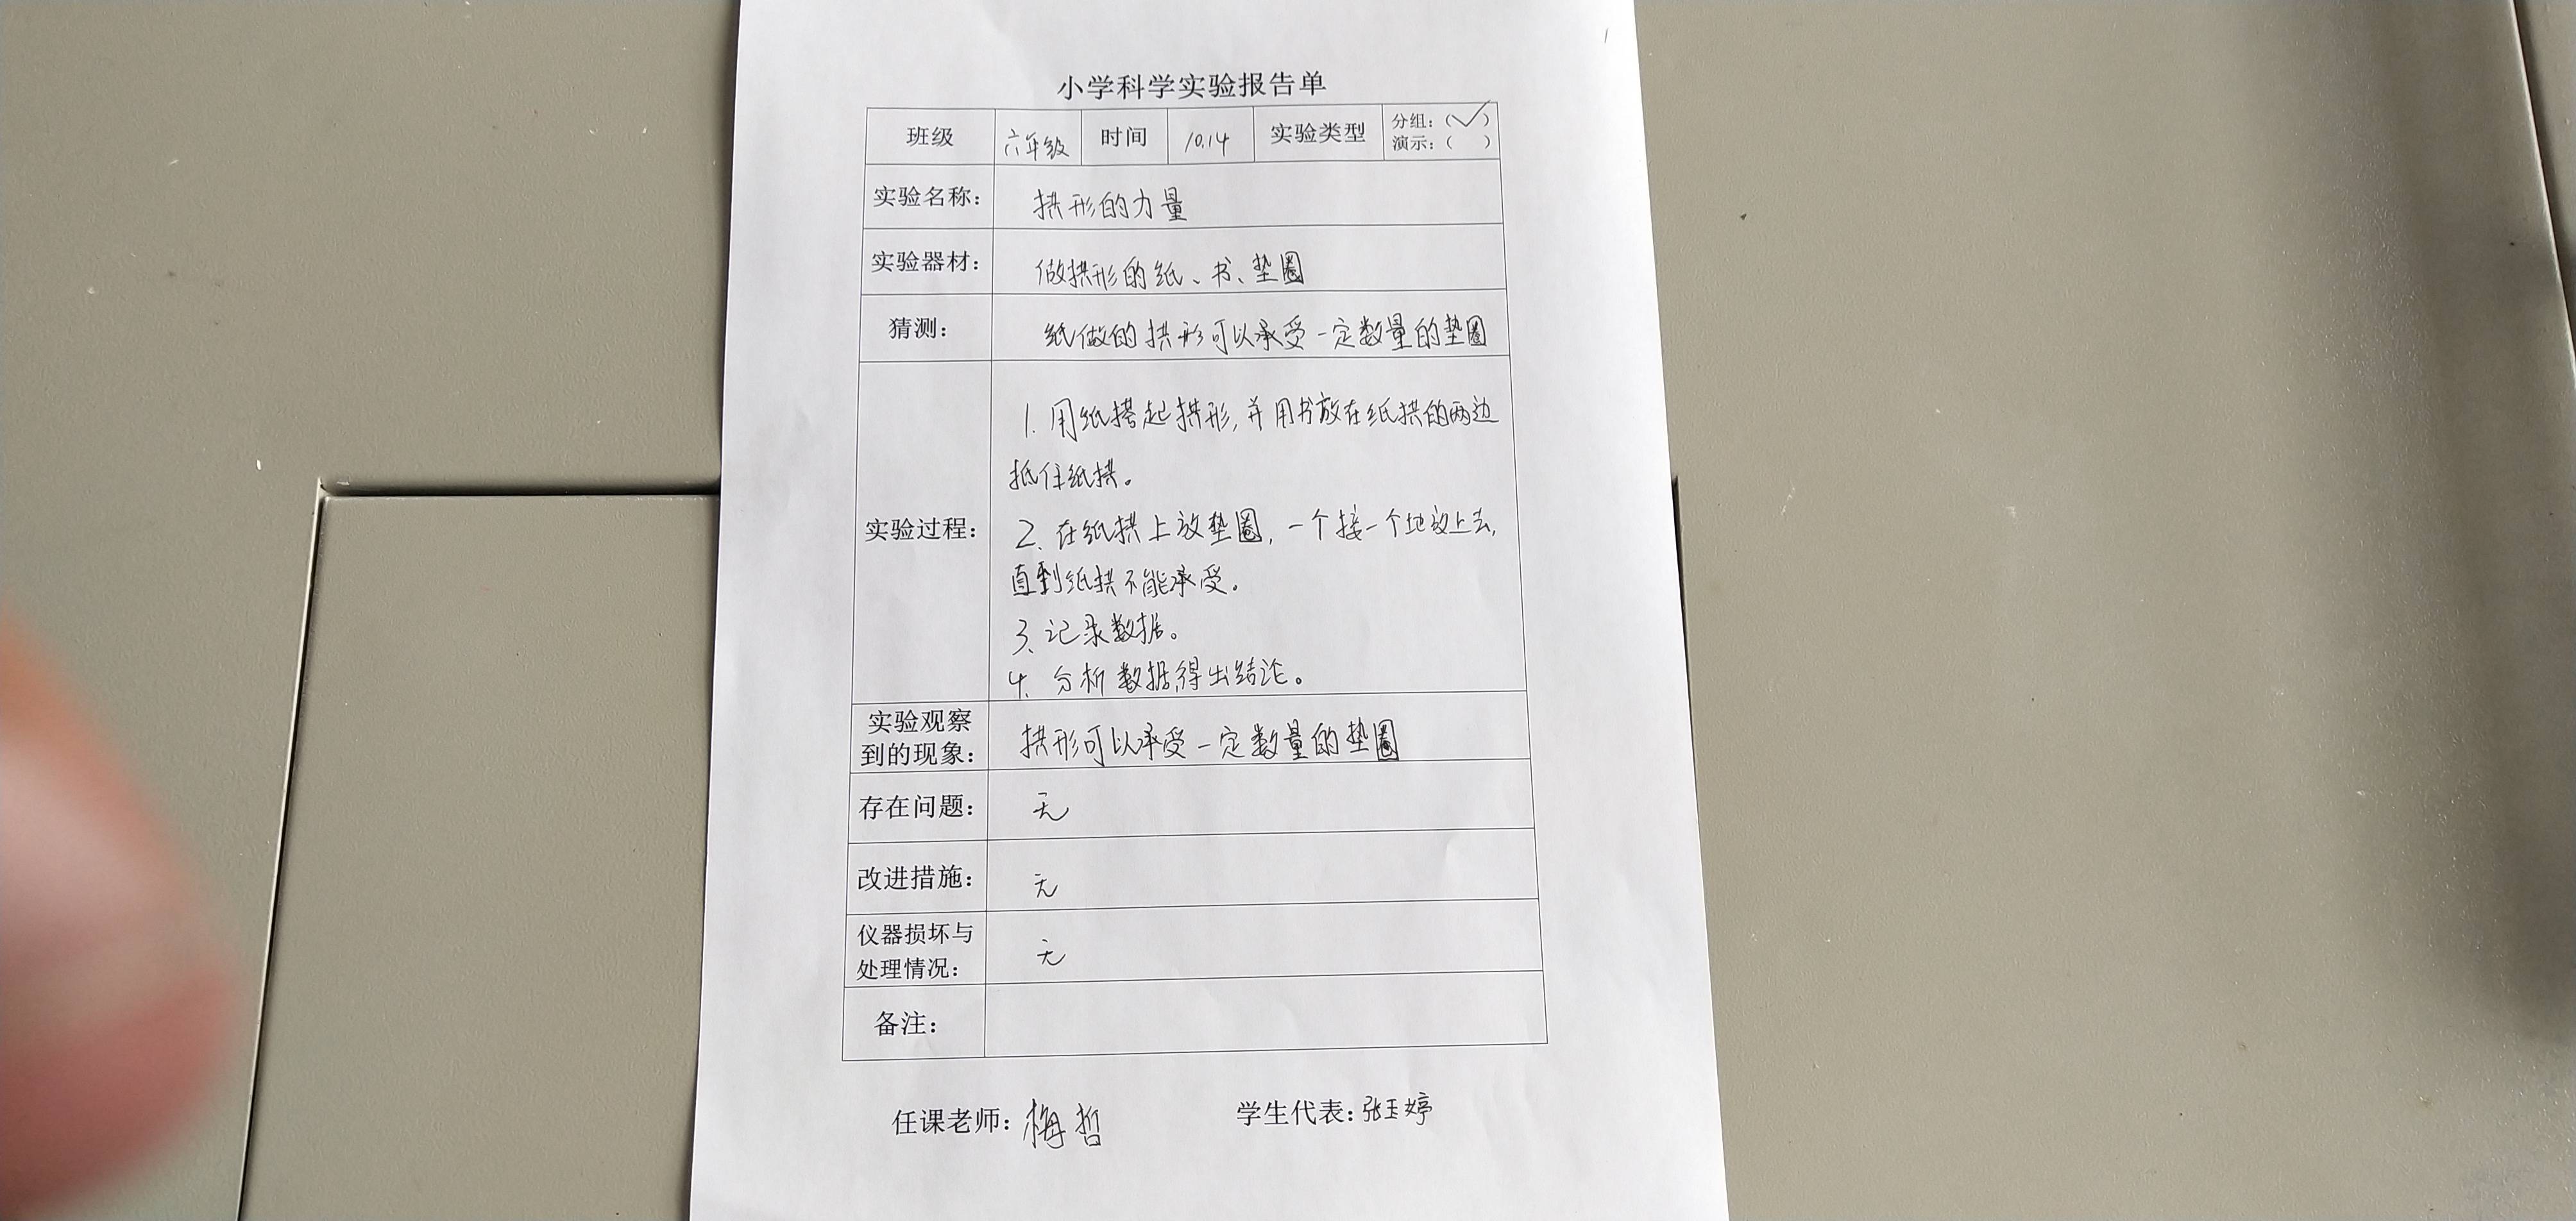 小学科学实验报告单
班级 六年级 时间 10.14 实验类型 分组：(✓)
演示：( )
实验名称： 拱形的力量
实验器材： 做拱形的纸、书、垫圈
猜测： 纸做的拱形可以承受一定数量的垫圈
实验过程： 1. 用纸搭起拱形,并用书放在纸拱的两边
抵住纸拱。
2、在纸拱上放垫圈，一个接一个地放上去,
直到纸拱不能承受。
3、记录数据。
4、分析数据,得出结论。
实验观察
到的现象： 拱形可以承受一定数量的垫圈
存在问题： 无
改进措施： 无
仪器损坏与
处理情况： 无
备注：
任课老师：梅哲 学生代表：张玉婷